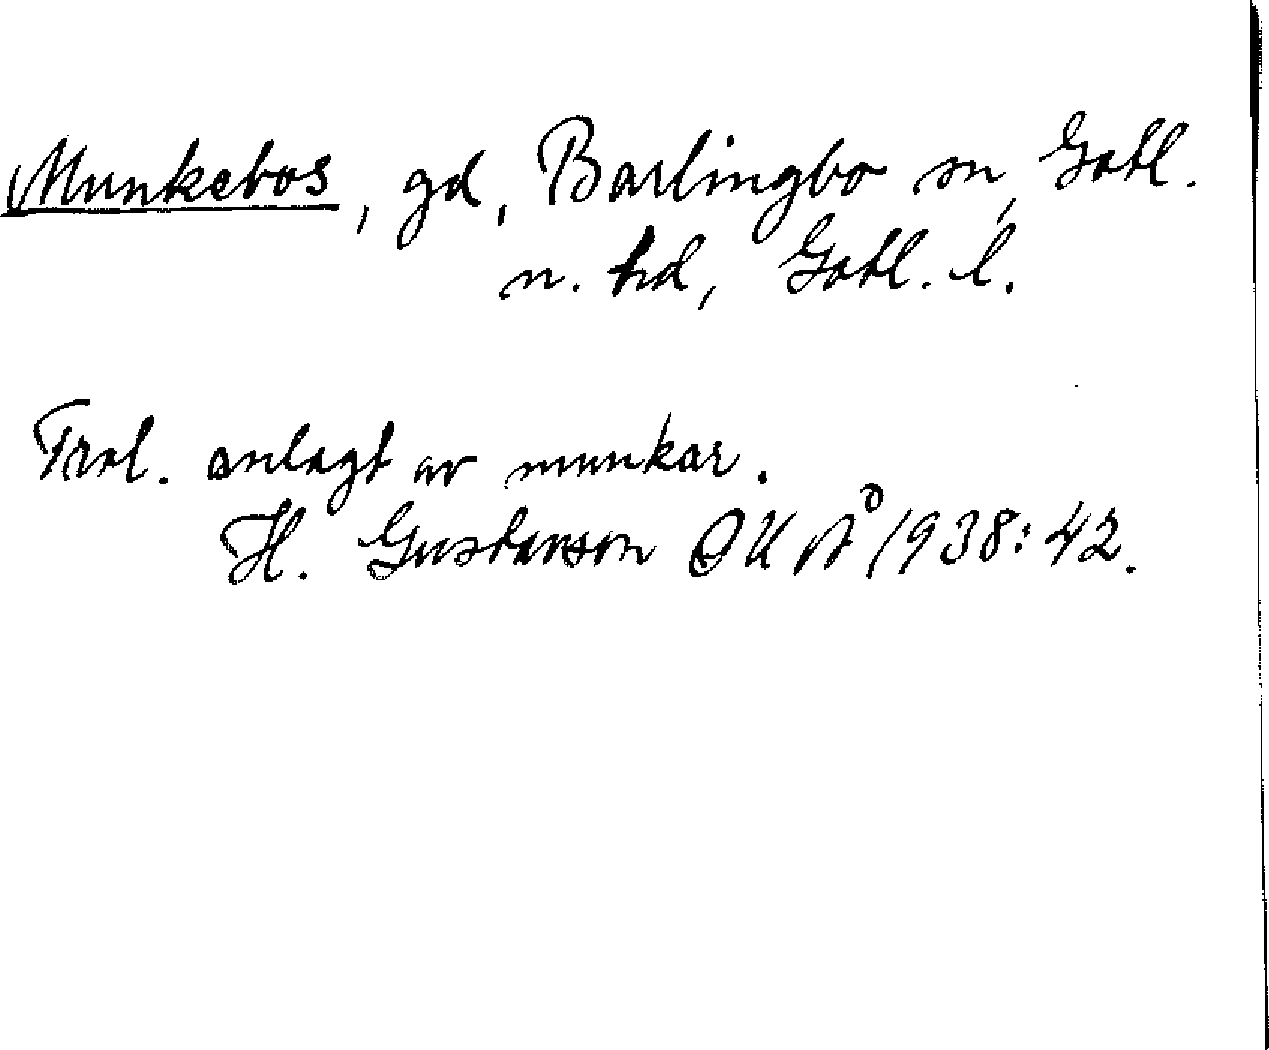 Munkebos, gd, Barlingbo sn, Gotl.
n. hd, Gotl. l.
Trol. anlagt av munkar.
H. Gustavson OUÅ 1938: 42.